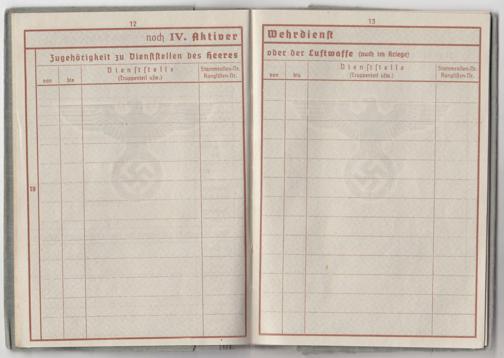 12
noch IV. Aktiver
Zugehörigkeit zu Dienststellen des Heeres
von
bis
Dienststelle
(Truppenteil usw.)
Stammrollen-Nr.
Ranglisten-Nr.
19
13
Wehrdienst
oder der Luftwaffe (auch im Kriege)
von
bis
Dienststelle
(Truppenteil usw.)
Stammrollen-Nr.
Ranglisten-Nr.